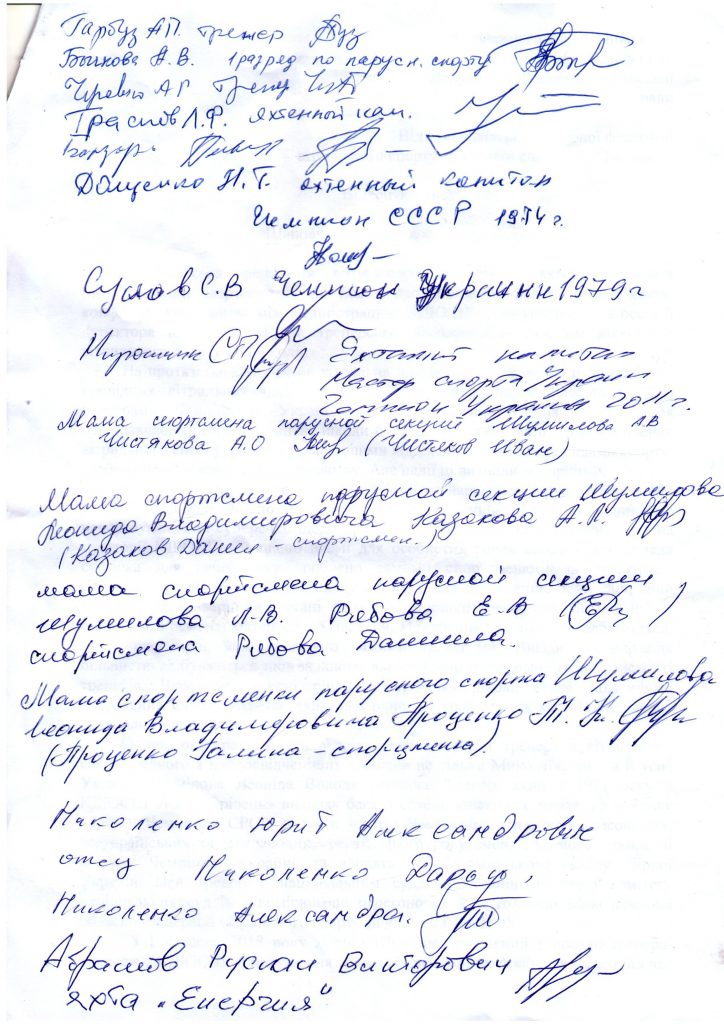 Гарбуз А.П. тренер
Бычкова Н.В. 1 разряд по парусн. спорту
А.Г. тренер
Л.Ф. яхтенный кап.
Бондарь
Дощенко Н.Т. яхтенный капитан
Чемпион СССР 1974 г.
С.В Чемпион Украины 1979 г
Мирошник СП Яхтенный капитан
Мастер спорта Украины
Чемпион Украины 2011 г.
Мама спортсмена парусной секций Шумилова Л.В
Чистякова А.О (Чистяков Иван)
Мама спортсмена парусной секции Шумилова
Леонида Владимировича Казакова А.Л.
(Казаков Данил - спортсмен.)
мама спортсмена парусной секции
Шумилова Л.В. Рябова Е.В
спортсмена Рябова Даниила.
Мама спортсменки парусного спорта Шумилова
Леонида Владимировича Проценко Т. К.
(Проценко Галина - спорцменка).
Николенко Юрий Александрович
отец Николенко Дарьи,
Николенко Александра.
Абрамов Руслан Викторович
яхта „Енергия"